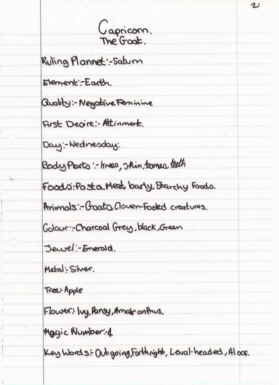 2
Capricorn.
The Goat.
Ruling Plannet:- Saturn
Element:- Earth.
Quality:- Negative Feminine
First Desire:- Attinment.
Day:- Wednesday.
Body Parts:- knees, Skin, bones, teeth
Foods: Pasta, Meat, barly, Starchy Foods.
Animals:- Goats, Cloven-Footed creatures.
Colour:- Charcoal Grey, black, Green
Jewel:- Emerald.
Metal:- Silver.
Tree:- Apple
Flower: Ivy, Pansy, Amaranthus.
Magic Number:-
Key Words:- Outgoing, Forthright, Level-headed, Aloof.